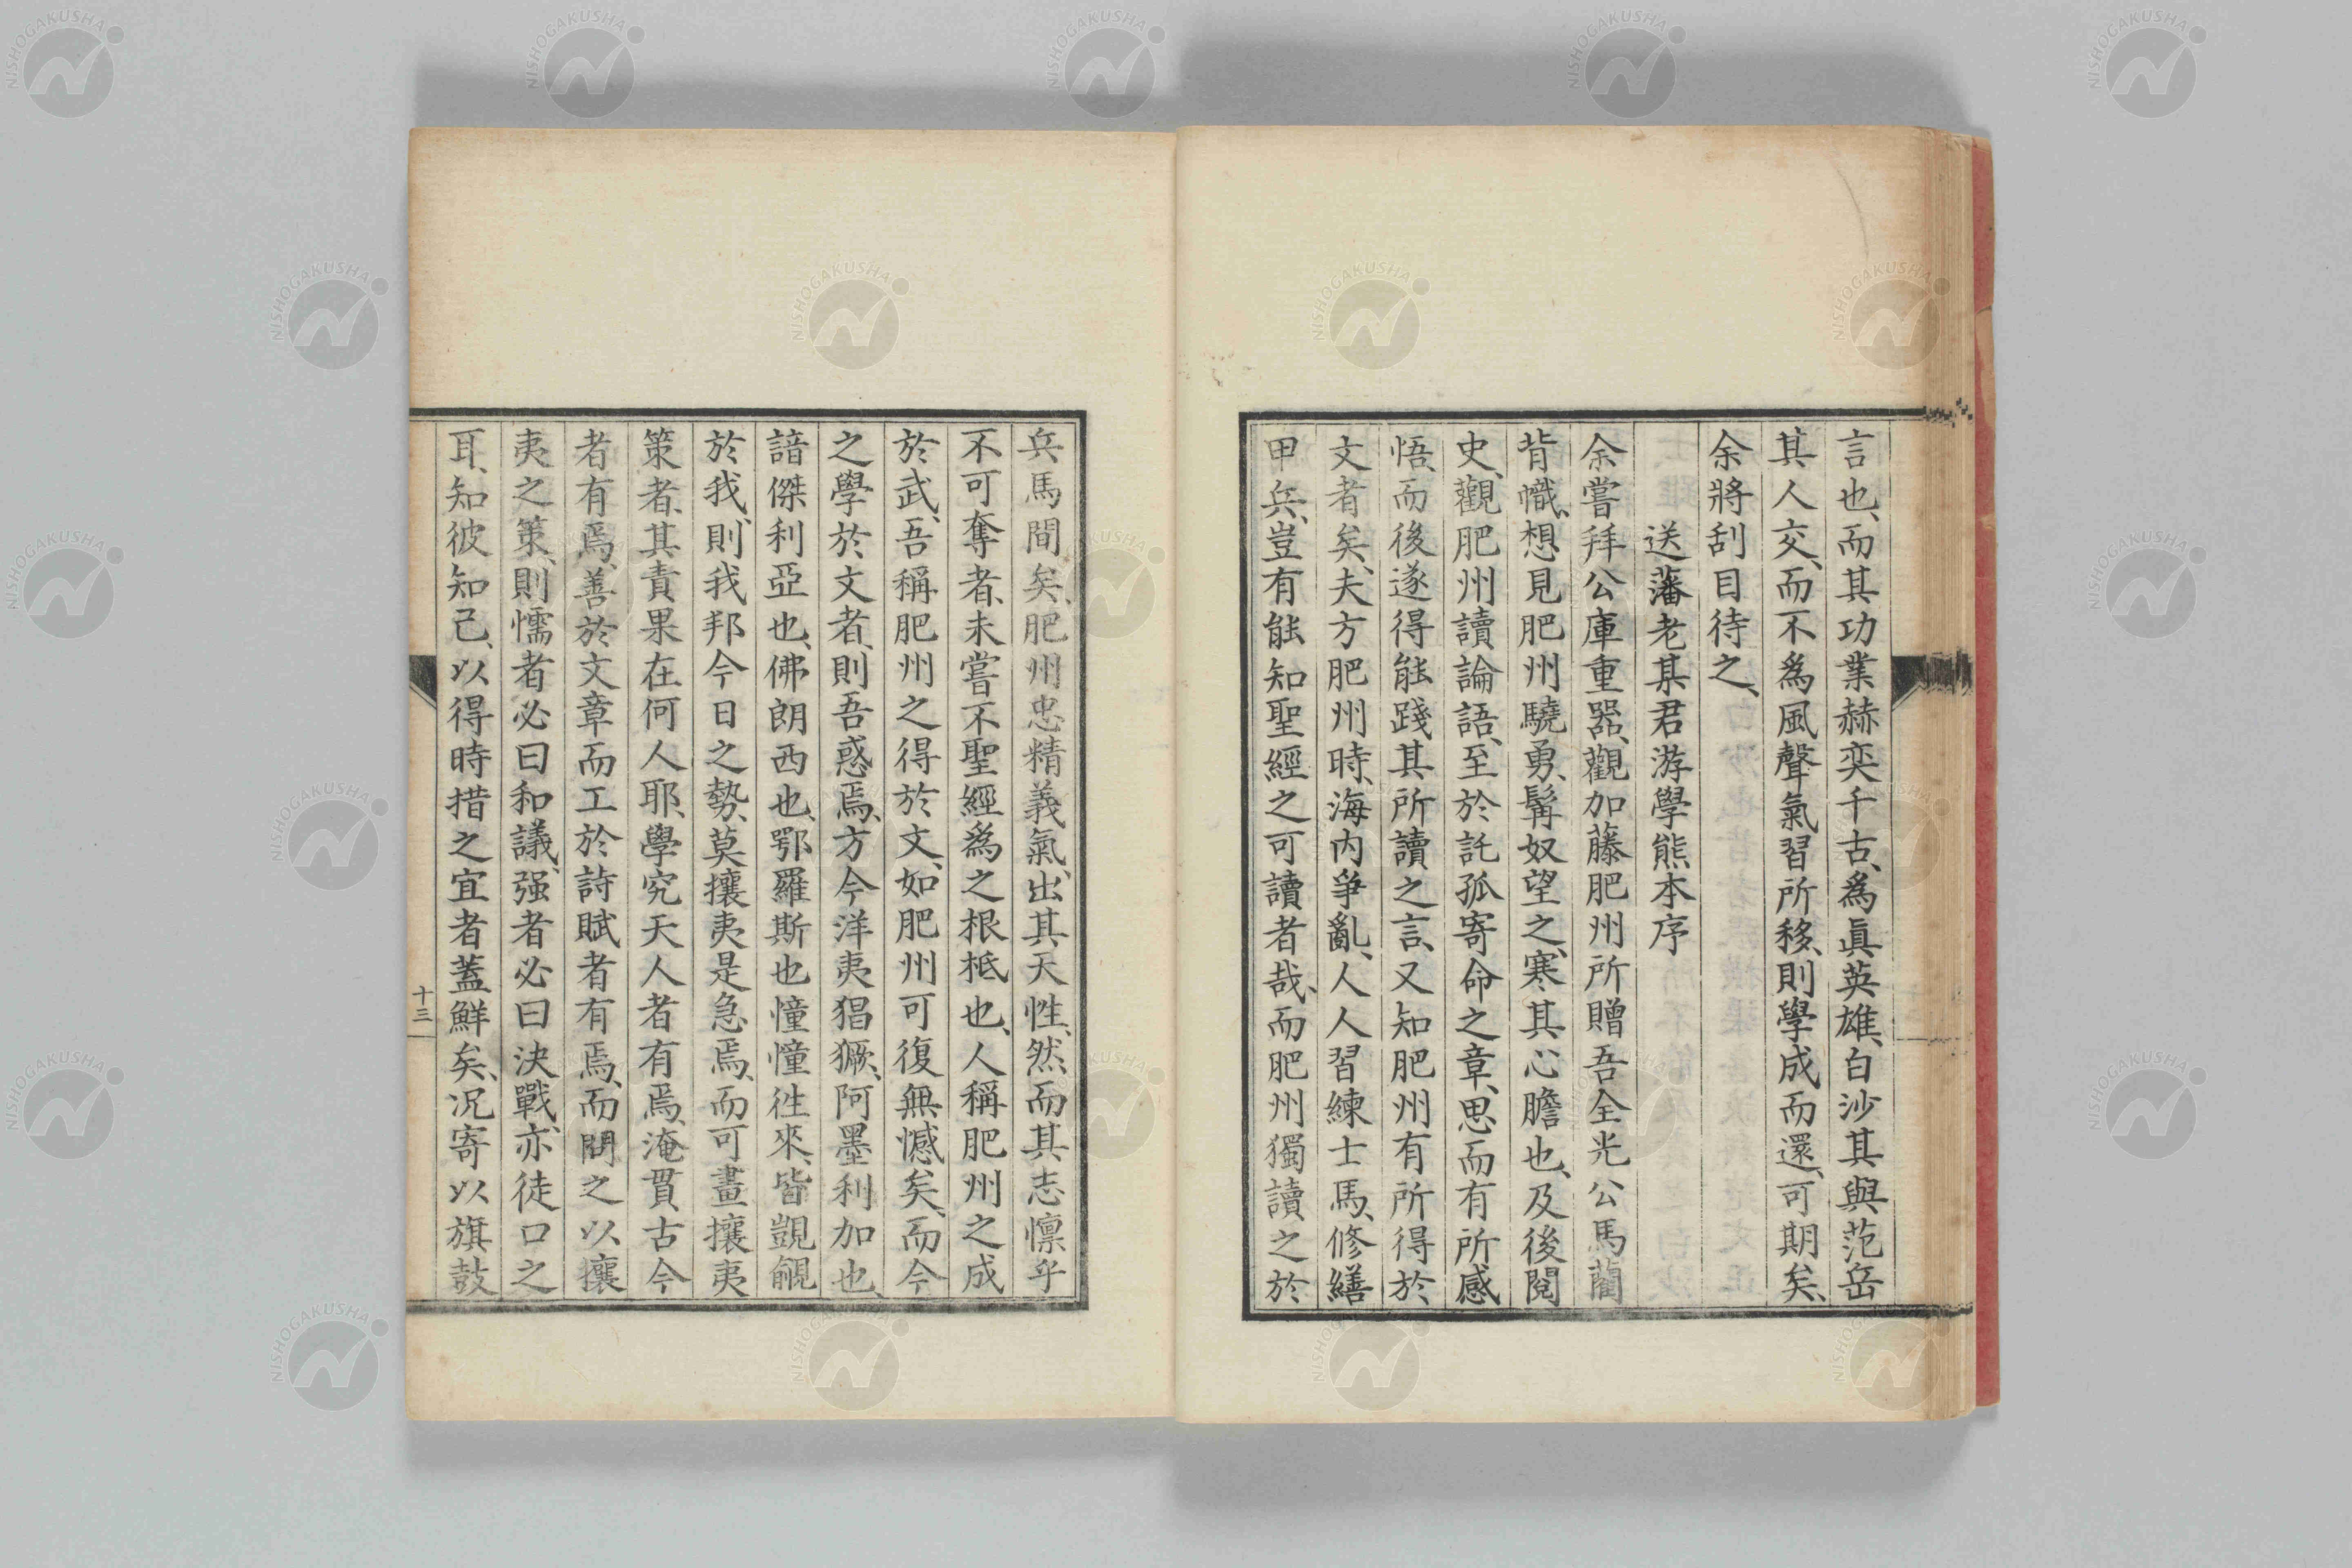 言也、而其功業赫奕千古、爲眞英雄、白沙其與范岳
其人交、而不爲風聲氣習所移、則學成而還、可期矣、
余將刮目待之、
送藩老某君游學熊本序
余嘗拜公庫重器、觀加藤肥州所贈吾全光公馬藺
背幟、想見肥州驍勇、髯奴望之、寒其心膽也、及後閱
史、觀肥州讀論語、至於託孤寄命之章、思而有所感
悟、而後遂得能踐其所讀之言、又知肥州有所得於
文者矣、夫方肥州時、海内爭亂、人人習練士馬、修繕
甲兵、豈有能知聖經之可讀者哉、而肥州獨讀之於
兵馬間矣、肥州忠精義氣、出其天性、然而其志懍乎
不可奪者、未嘗不聖經爲之根柢也、人稱肥州之成
於武、吾稱肥州之得於文、如肥州可復無憾矣、而今
之學於文者、則吾惑焉、方今洋夷猖獗、阿墨利加也、
諳傑利亞也、佛朗西也、鄂羅斯也、憧憧徃來、皆覬覦
於我、則我邦今日之勢、莫攘夷是急焉、而可畫攘夷
策者、其責果在何人耶、學究天人者有焉、淹貫古今
者有焉、善於文章而工於詩賦者有焉、而問之以攘
夷之策、則懦者必曰和議、强者必曰決戰、亦徒口之
耳、知彼知己、以得時措之宜者蓋鮮矣、况寄以旗鼓
十三
NISHOGAKUSHA